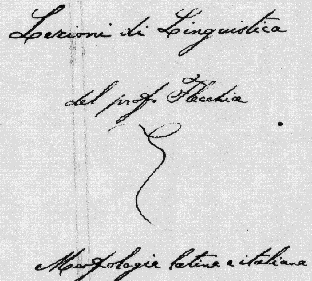 Lezioni di Linguistica
del prof. Flecchia
Morfologia latina e italiana